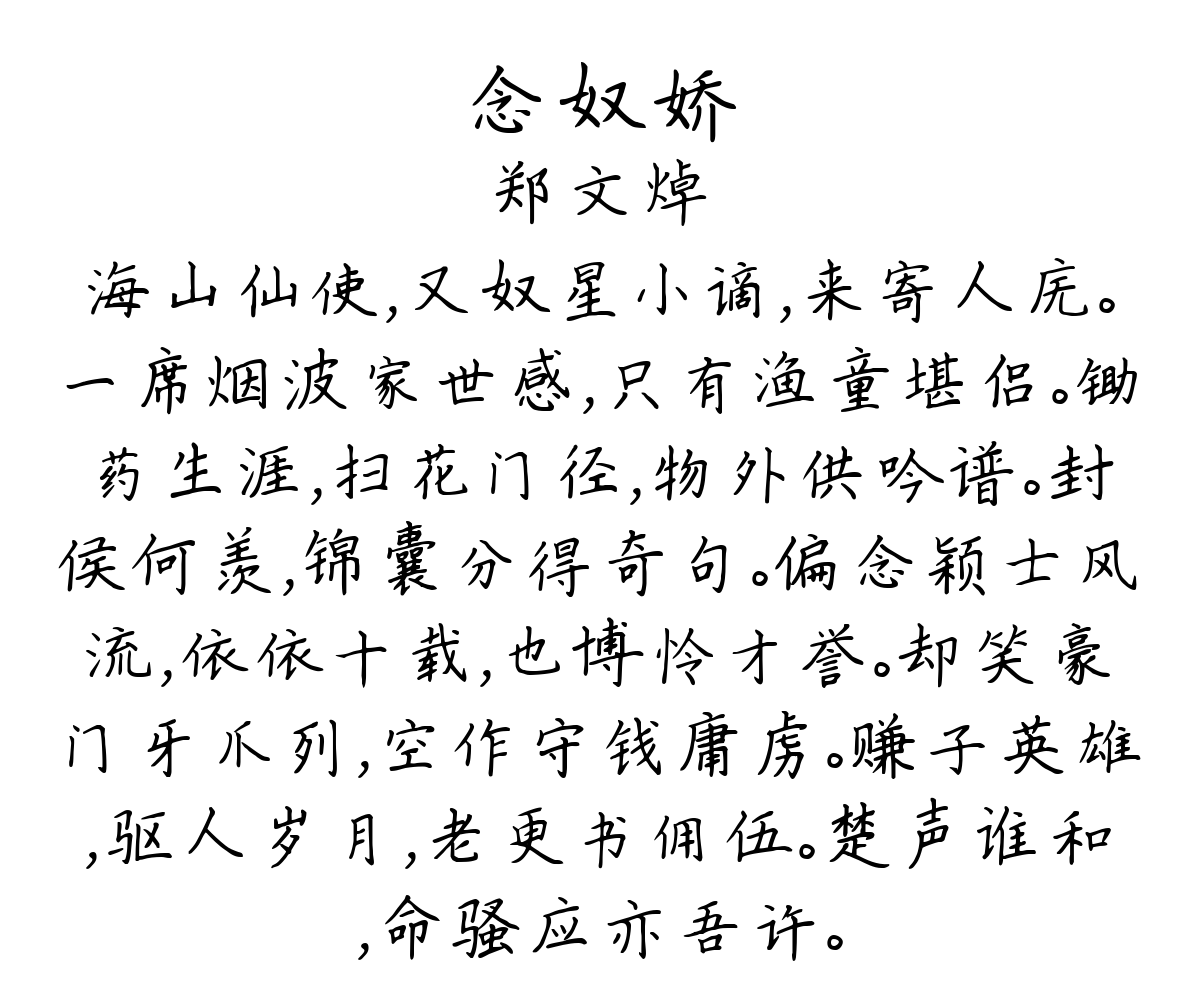 念奴娇
郑文焯
海山仙使,又奴星小谪,来寄人庑。
一席烟波家世感,只有渔童堪侣。锄
药生涯,扫花门径,物外供吟谱。封
侯何羡,锦囊分得奇句。偏念颖士风
流,依依十载,也博怜才誉。却笑豪
门牙爪列,空作守钱庸虏。赚子英雄
,驱人岁月,老更书佣伍。楚声谁和
,命骚应亦吾许。